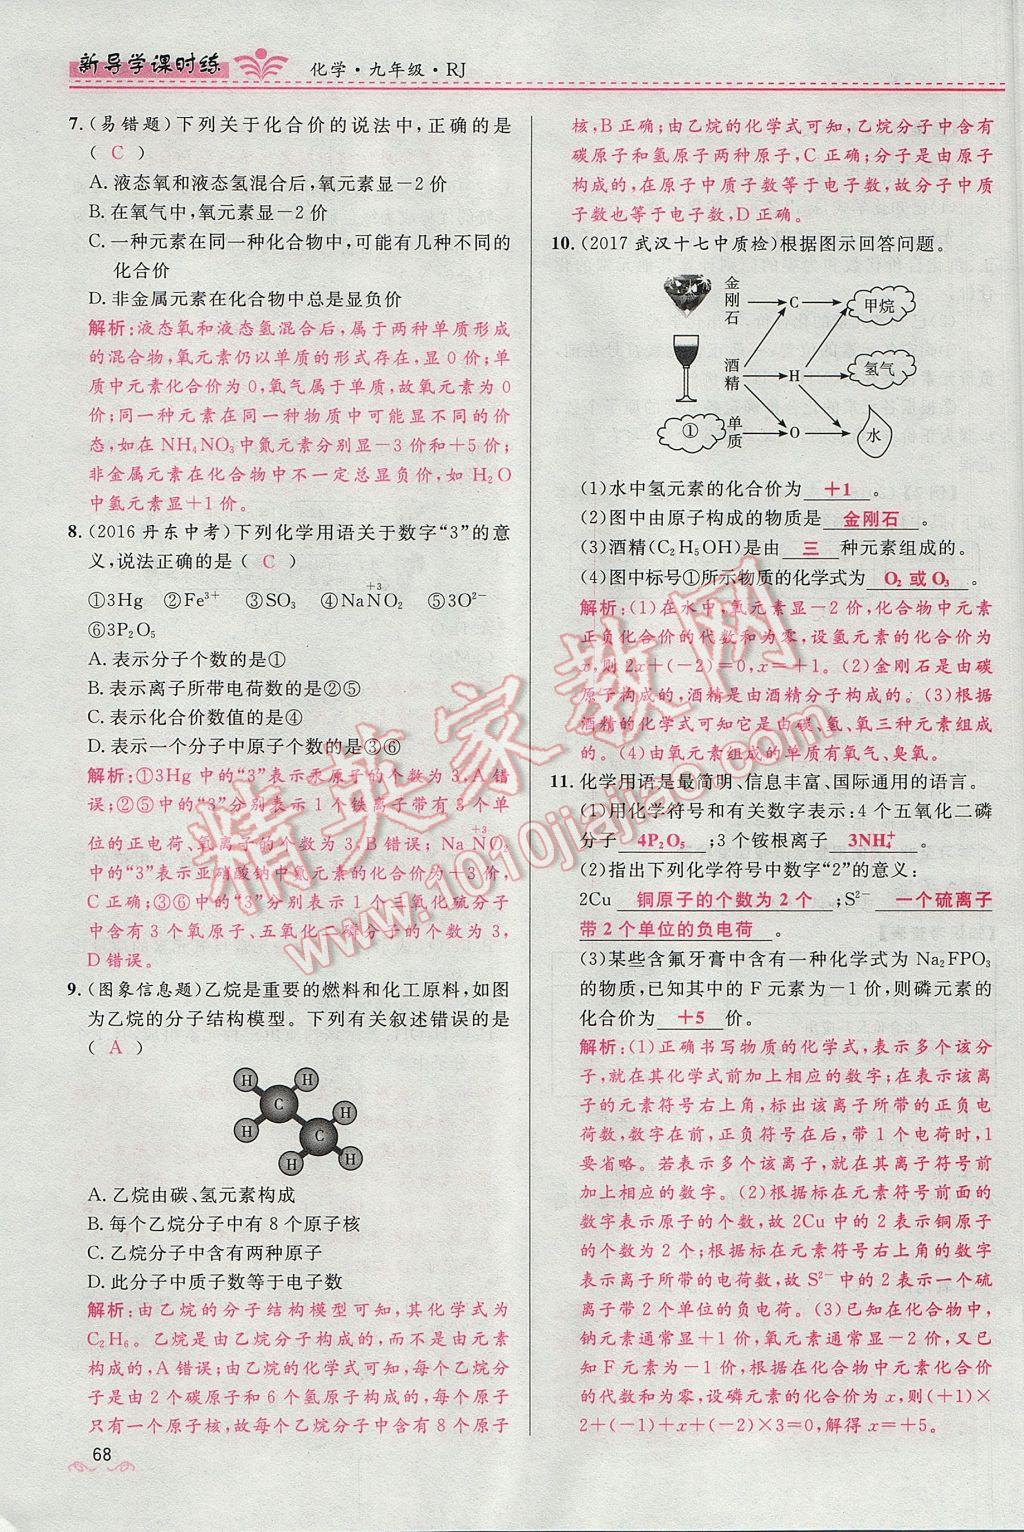 新导学课时练 化学·九年级·RJ
7. (易错题)下列关于化合价的说法中,正确的是
( C )
A. 液态氧和液态氢混合后,氧元素显-2价
B. 在氧气中,氧元素显-2价
C. 一种元素在同一种化合物中,可能有几种不同的
化合价
D. 非金属元素在化合物中总是显负价
解析:液态氧和液态氢混合后,属于两种单质形成
的混合物,氧元素仍以单质的形式存在,显0价;单
质中元素化合价为0,氧气属于单质,故氧元素为0
价;同一种元素在同一种物质中可能显不同的价
态,如在NH₄NO₃中氮元素分别显-3价和+5价;
非金属元素在化合物中不一定总显负价,如H₂O
中氢元素显+1价。
8. (2016丹东中考)下列化学用语关于数字“3”的意
义,说法正确的是( C )
+3
①3Hg ②Fe³⁺ ③SO₃ ④NaNO₂ ⑤3O²⁻
⑥3P₂O₅
A. 表示分子个数的是①
B. 表示离子所带电荷数的是②⑤
C. 表示化合价数值的是④
D. 表示一个分子中原子个数的是③⑥
解析:①3Hg中的“3”表示汞原子的个数为3,A错
误;②⑤中的“3”分别表示1个铁离子带有3个单
+3
位的正电荷、氧离子的个数为3,B错误;NaNO₂
中的“3”表示亚硝酸钠中氮元素的化合价为+3,
C正确;③⑥中的“3”分别表示1个三氧化硫分子
中含有3个氧原子、五氧化二磷分子的个数为3,
D错误。
9. (图象信息题)乙烷是重要的燃料和化工原料,如图
为乙烷的分子结构模型。下列有关叙述错误的是
( A )
H H
H C H
H C
H H
A. 乙烷由碳、氢元素构成
B. 每个乙烷分子中有8个原子核
C. 乙烷分子中含有两种原子
D. 此分子中质子数等于电子数
解析:由乙烷的分子结构模型可知,其化学式为
C₂H₆。乙烷是由乙烷分子构成的,而不是由元素
构成的,A错误;由乙烷的化学式可知,每个乙烷分
子是由2个碳原子和6个氢原子构成的,每个原子
只有一个原子核,故每个乙烷分子中含有8个原子
核,B正确;由乙烷的化学式可知,乙烷分子中含有
碳原子和氢原子两种原子,C正确;分子是由原子
构成的,在原子中质子数等于电子数,故分子中质
子数也等于电子数,D正确。
10. (2017武汉十七中质检)根据图示回答问题。
金刚石 C 甲烷
酒精 H 氢气
① 单质 O 水
(1)水中氢元素的化合价为 +1 。
(2)图中由原子构成的物质是 金刚石 。
(3)酒精(C₂H₅OH)是由 三 种元素组成的。
(4)图中标号①所示物质的化学式为 O₂或O₃ 。
解析:(1)在水中,氧元素显-2价,化合物中元素
正负化合价的代数和为零,设氢元素的化合价为
x,则2x+(-2)=0,x=+1。(2)金刚石是由碳
原子构成的,酒精是由酒精分子构成的。(3)根据
酒精的化学式可知它是由碳、氢、氧三种元素组成
的。(4)由氧元素组成的单质有氧气、臭氧。
11. 化学用语是最简明、信息丰富、国际通用的语言。
(1)用化学符号和有关数字表示:4个五氧化二磷
分子 4P₂O₅ ;3个铵根离子 3NH₄⁺ 。
(2)指出下列化学符号中数字“2”的意义:
2Cu 铜原子的个数为2个 ;S²⁻ 一个硫离子
带2个单位的负电荷 。
(3)某些含氟牙膏中含有一种化学式为Na₂FPO₃
的物质,已知其中的F元素为-1价,则磷元素的
化合价为 +5 价。
解析:(1)正确书写物质的化学式,表示多个该分
子,就在其化学式前加上相应的数字;在表示该离
子的元素符号右上角,标出该离子所带的正负电
荷数,数字在前,正负符号在后,带1个电荷时,1
要省略。若表示多个该离子,就在其离子符号前
加上相应的数字。(2)根据标在元素符号前面的
数字表示原子的个数,故2Cu中的2表示铜原子
的个数为2个;根据标在元素符号右上角的数字
表示离子所带的电荷数,故S²⁻中的2表示一个硫
离子带2个单位的负电荷。(3)已知在化合物中,
钠元素通常显+1价,氧元素通常显-2价,又已
知F元素为-1价,根据在化合物中元素化合价
的代数和为零,设磷元素的化合价为x,则(+1)×
2+(-1)+x+(-2)×3=0,解得x=+5。
68
精英家教网
www.1010jiajiao.com